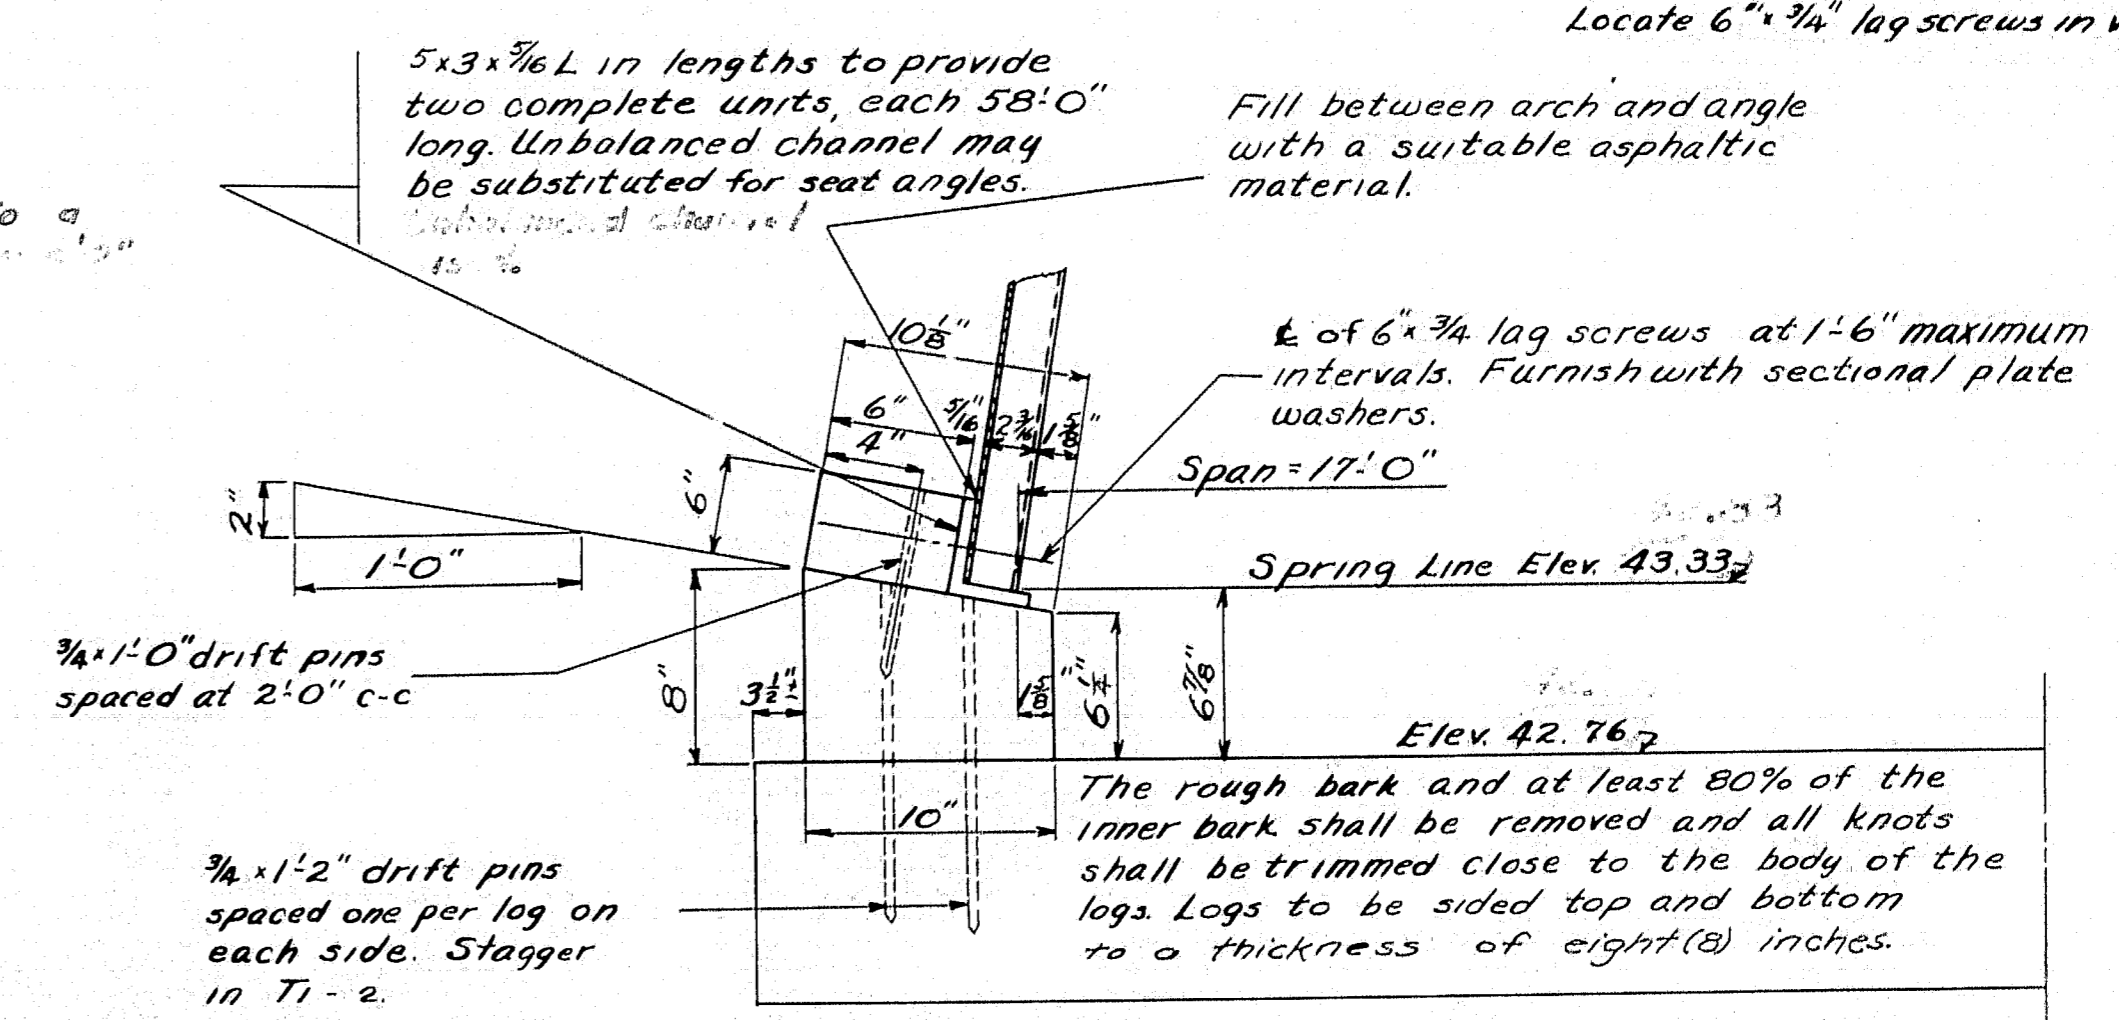 Locate 6"x 3/4" lag screws in
5x3x5/16 L in lengths to provide
two complete units, each 58'-0"
long. Unbalanced channel may
be substituted for seat angles.
Fill between arch and angle
with a suitable asphaltic
material.
a
10 1/8"
℄ of 6"x 3/4 lag screws at 1'-6" maximum
intervals. Furnish with sectional plate
washers.
6"
5/16"
2 3/16
1 5/8"
4"
Span = 17'-0"
6"
2"
1'-0"
Spring Line Elev. 43.33
3/4 x 1'-0" drift pins
spaced at 2'-0" c-c
8"
3 1/2"±
1 5/8
6 1/4"
6 7/8"
Elev. 42.76
10"
The rough bark and at least 80% of the
inner bark shall be removed and all knots
shall be trimmed close to the body of the
logs. Logs to be sided top and bottom
to a thickness of eight (8) inches.
3/4 x 1'-2" drift pins
spaced one per log on
each side. Stagger
in T1 - 2.